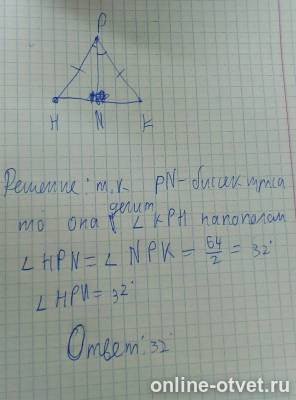 P
H N K
Решение: т.к PN-бисектриса
то она делит ∠KPH напополам
∠HPN = ∠NPK = 64/2 = 32°
∠HPN = 32°
Ответ: 32°
online-otvet.ru